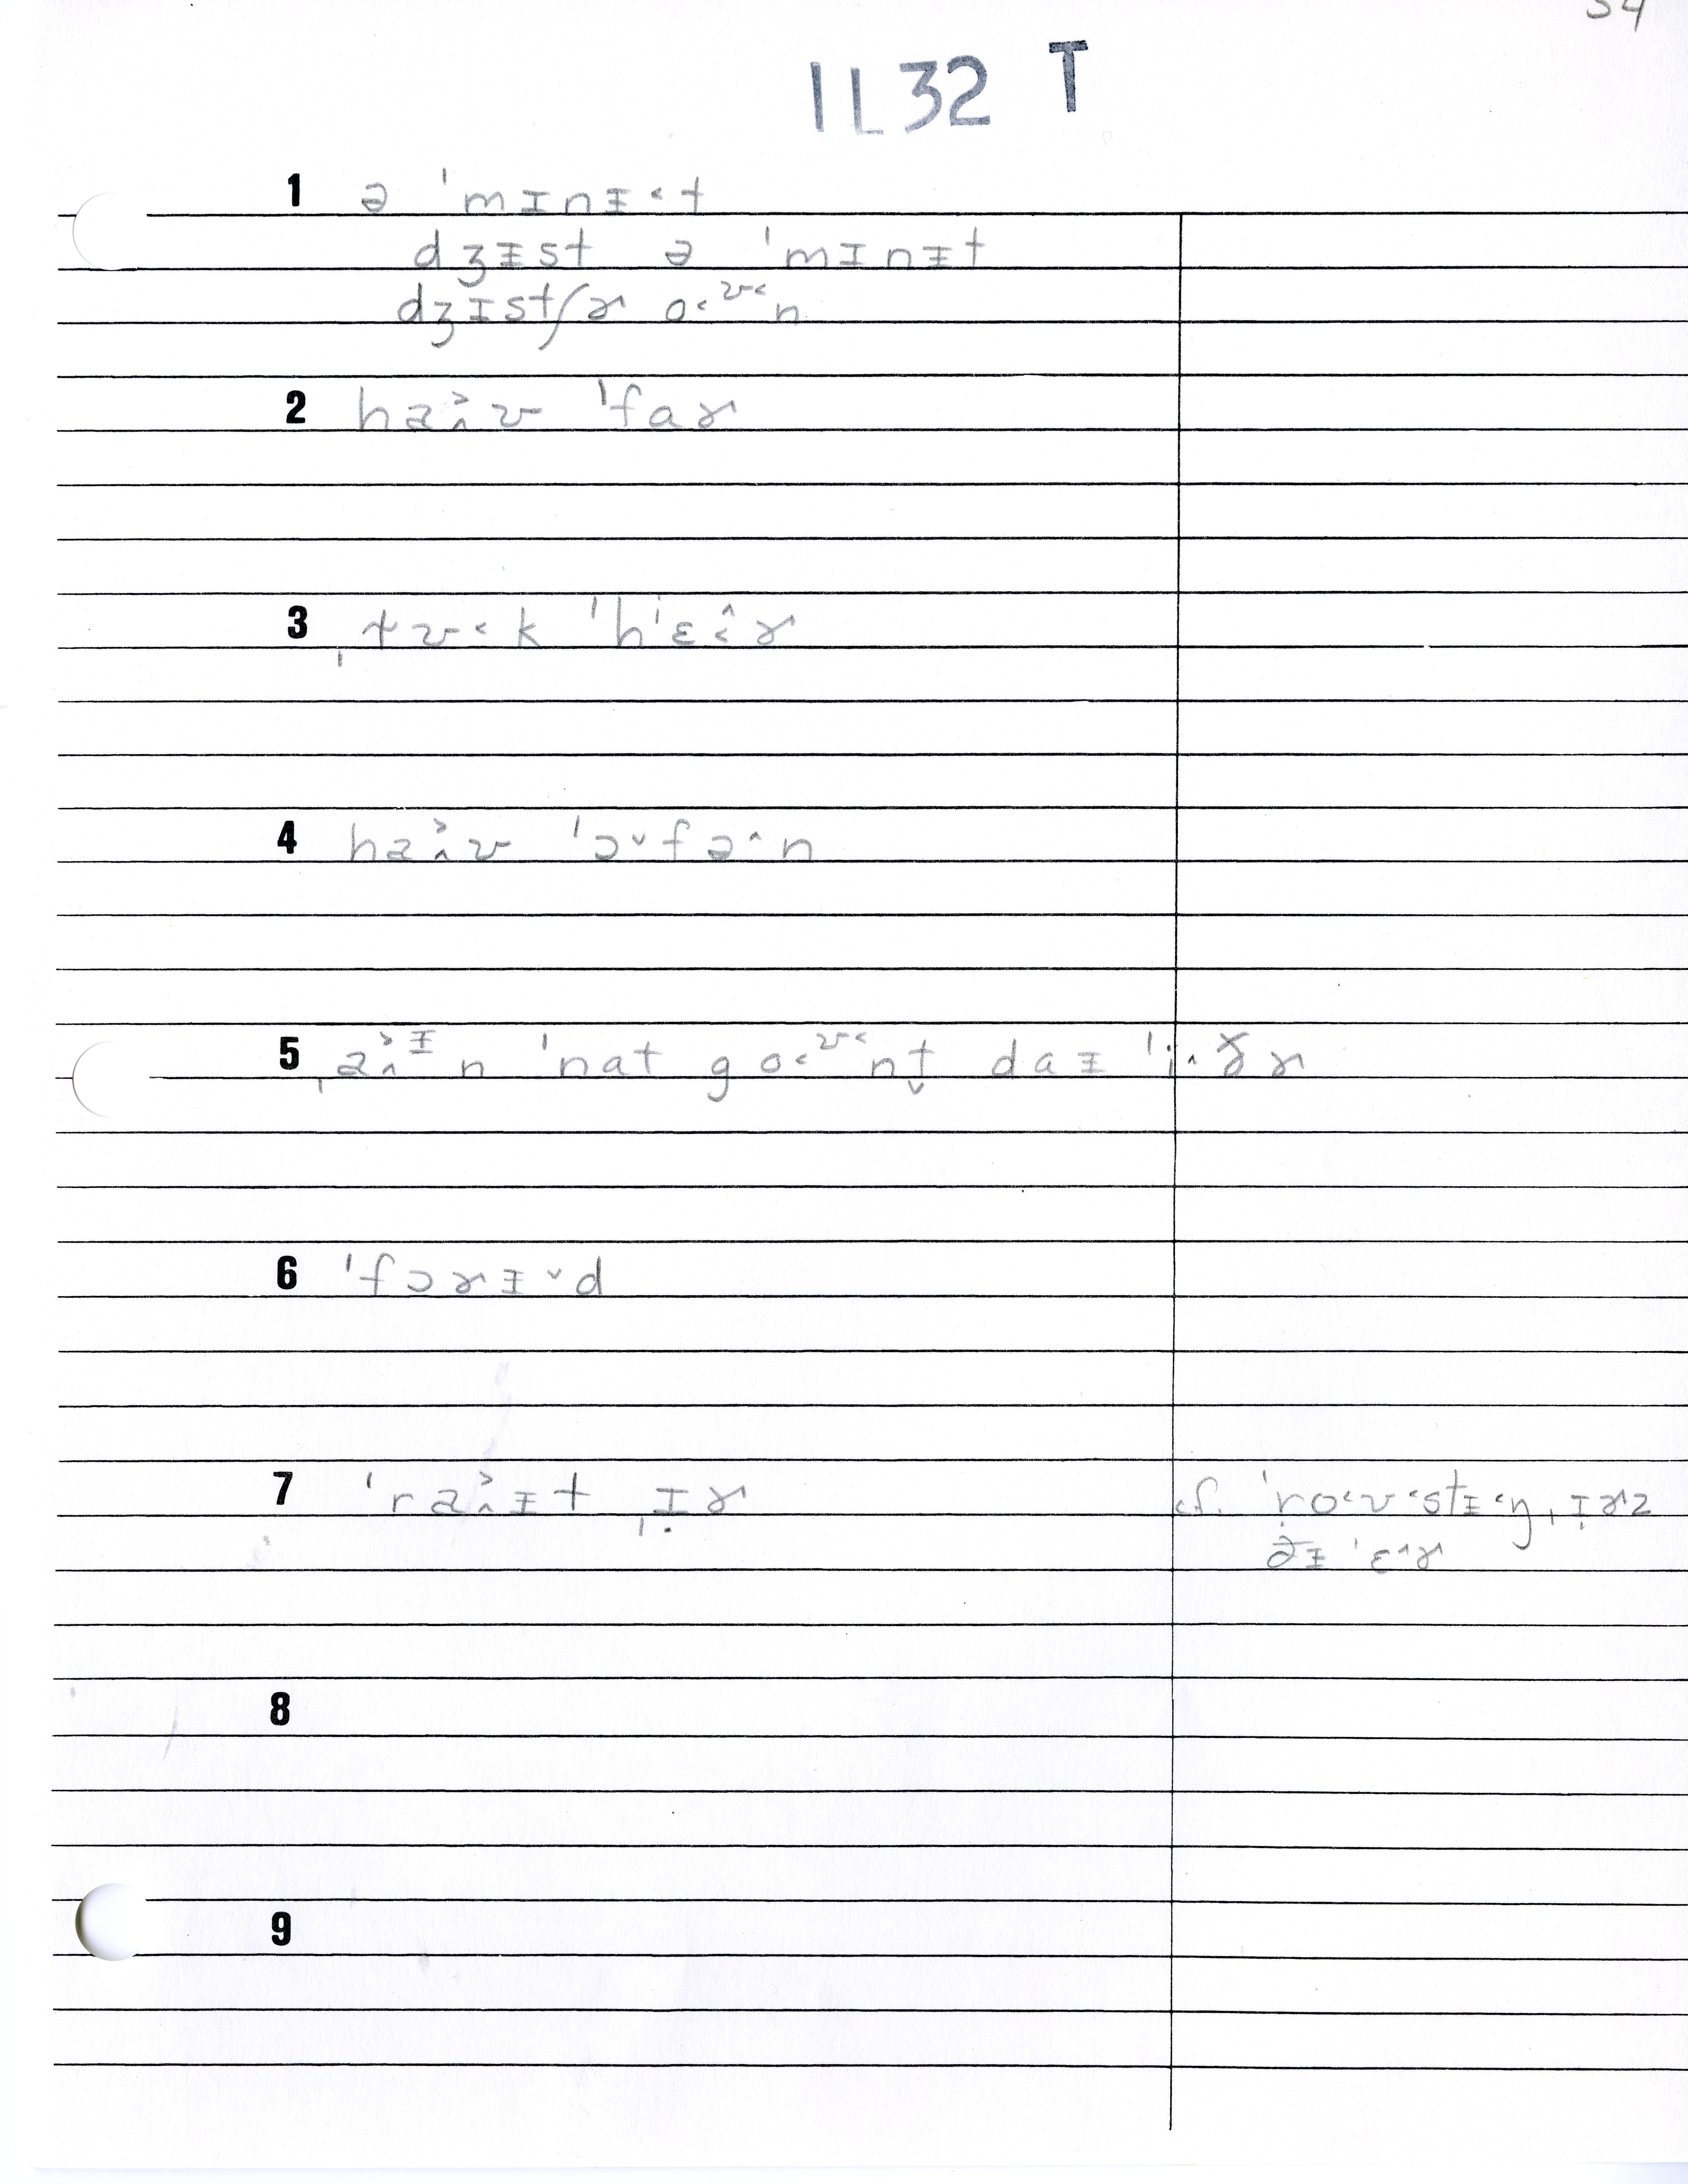 34
IL32 T
1 ə ˈmɪnɪ˂t
dʒɪst ə ˈmɪnɪt
dʒɪstʃɚ o˂ʊ˂n
2 ha̭˃ʊ ˈfaɚ
3 ˌtʊ˂k ˈhˈɛ˂̂ɚ
4 ha̭˃ʊ ˈɔ˅fə^n
5 ˌa̭˃ɪn ˈnat go˂ʊ˂nt̬ daɪ ˈi^ðɚ
6 ˈfɔɚɪ˅d
7 ˈra̭˃ɪt ˌɪ̣ɚ cf. ˈro˂ʊ˂stɪ˂ŋ ˌɪ̣ɚz
ðɪ ˈɛ^ɚ
8
9